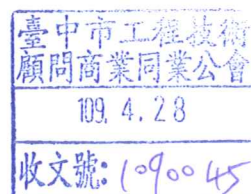 臺中市工程技術
顧問商業同業公會
109. 4. 28
收文號:1090045